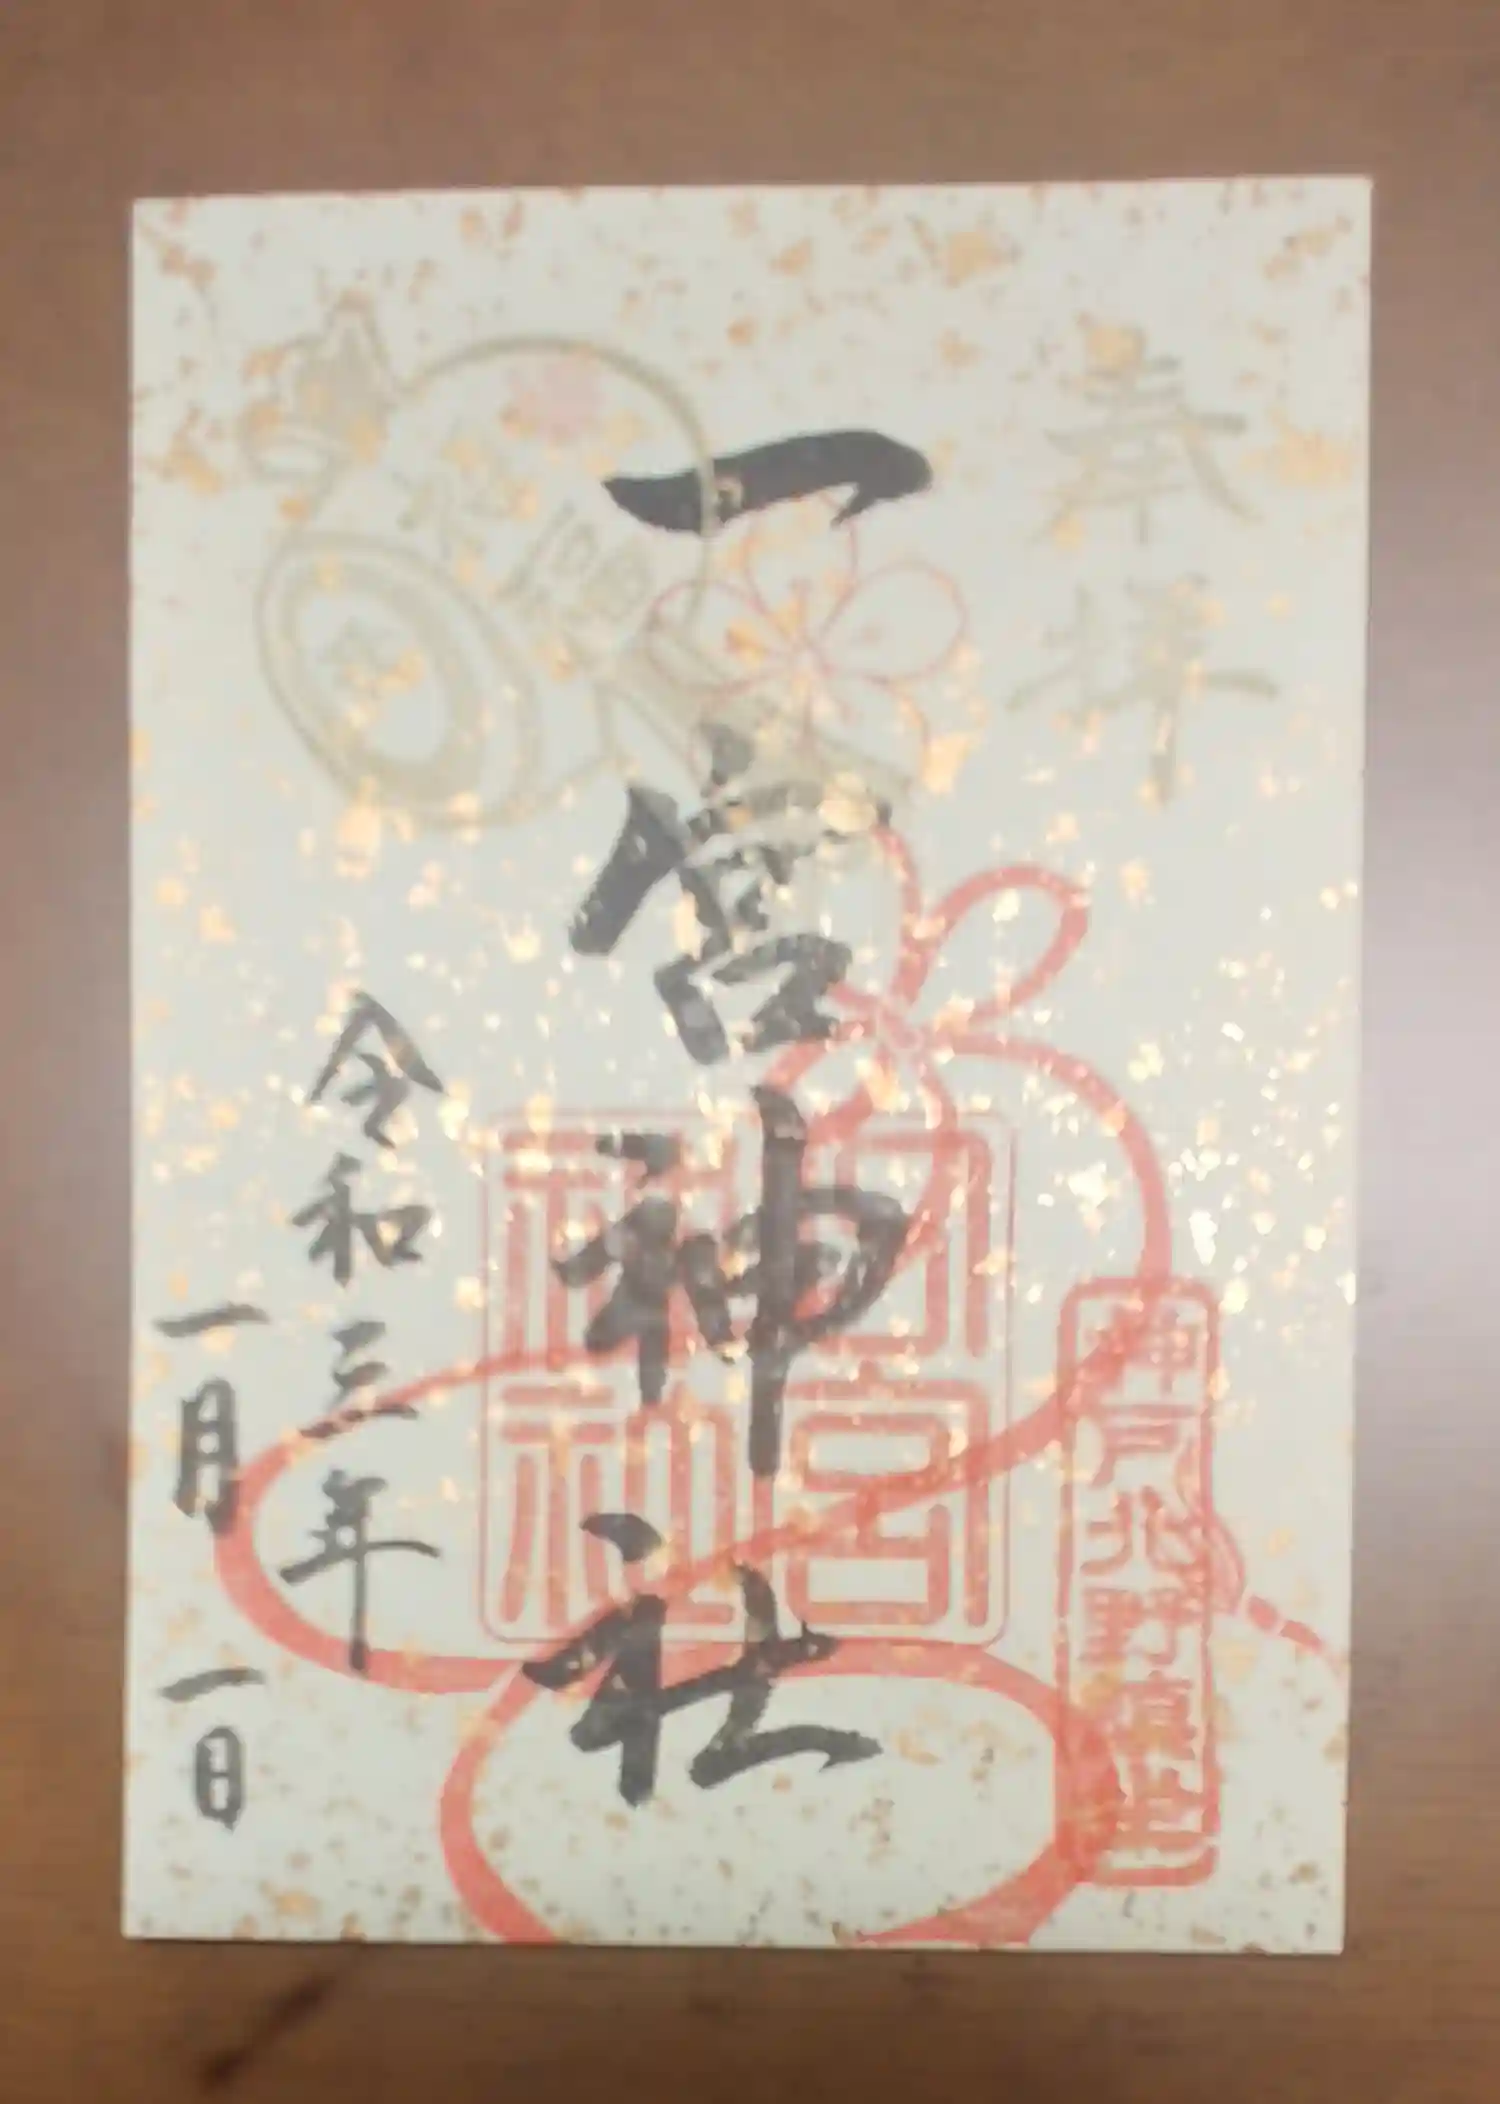 奉拝
一宮神社
一宮神社
神戸北野鎮座
令和三年
一月一日